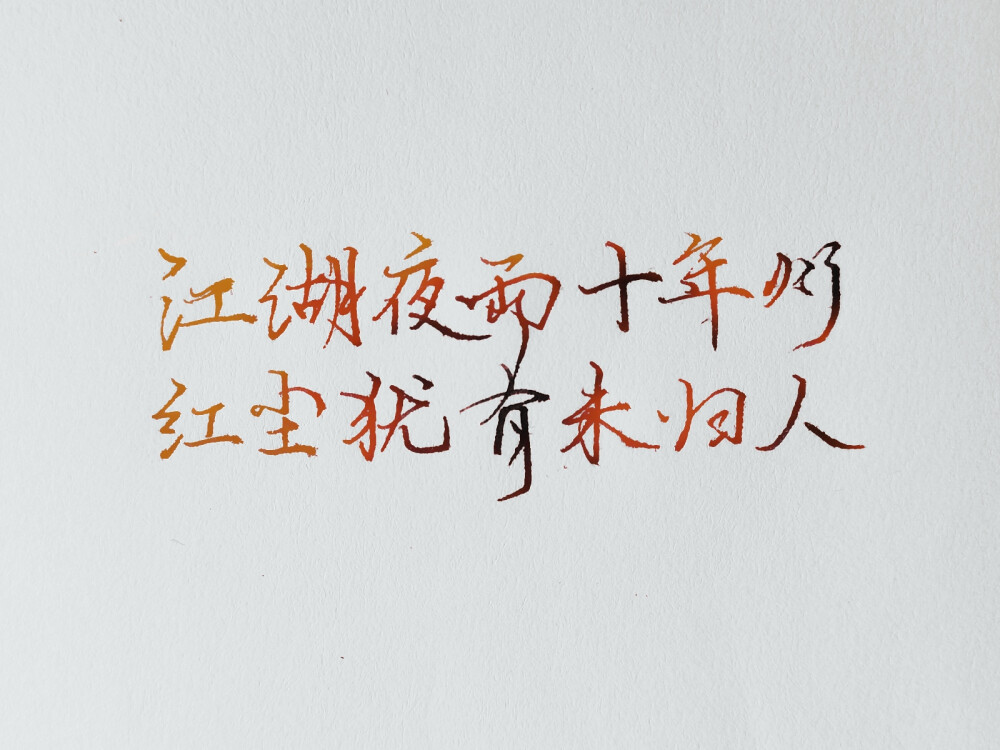 江湖夜雨十年灯
红尘犹有未归人